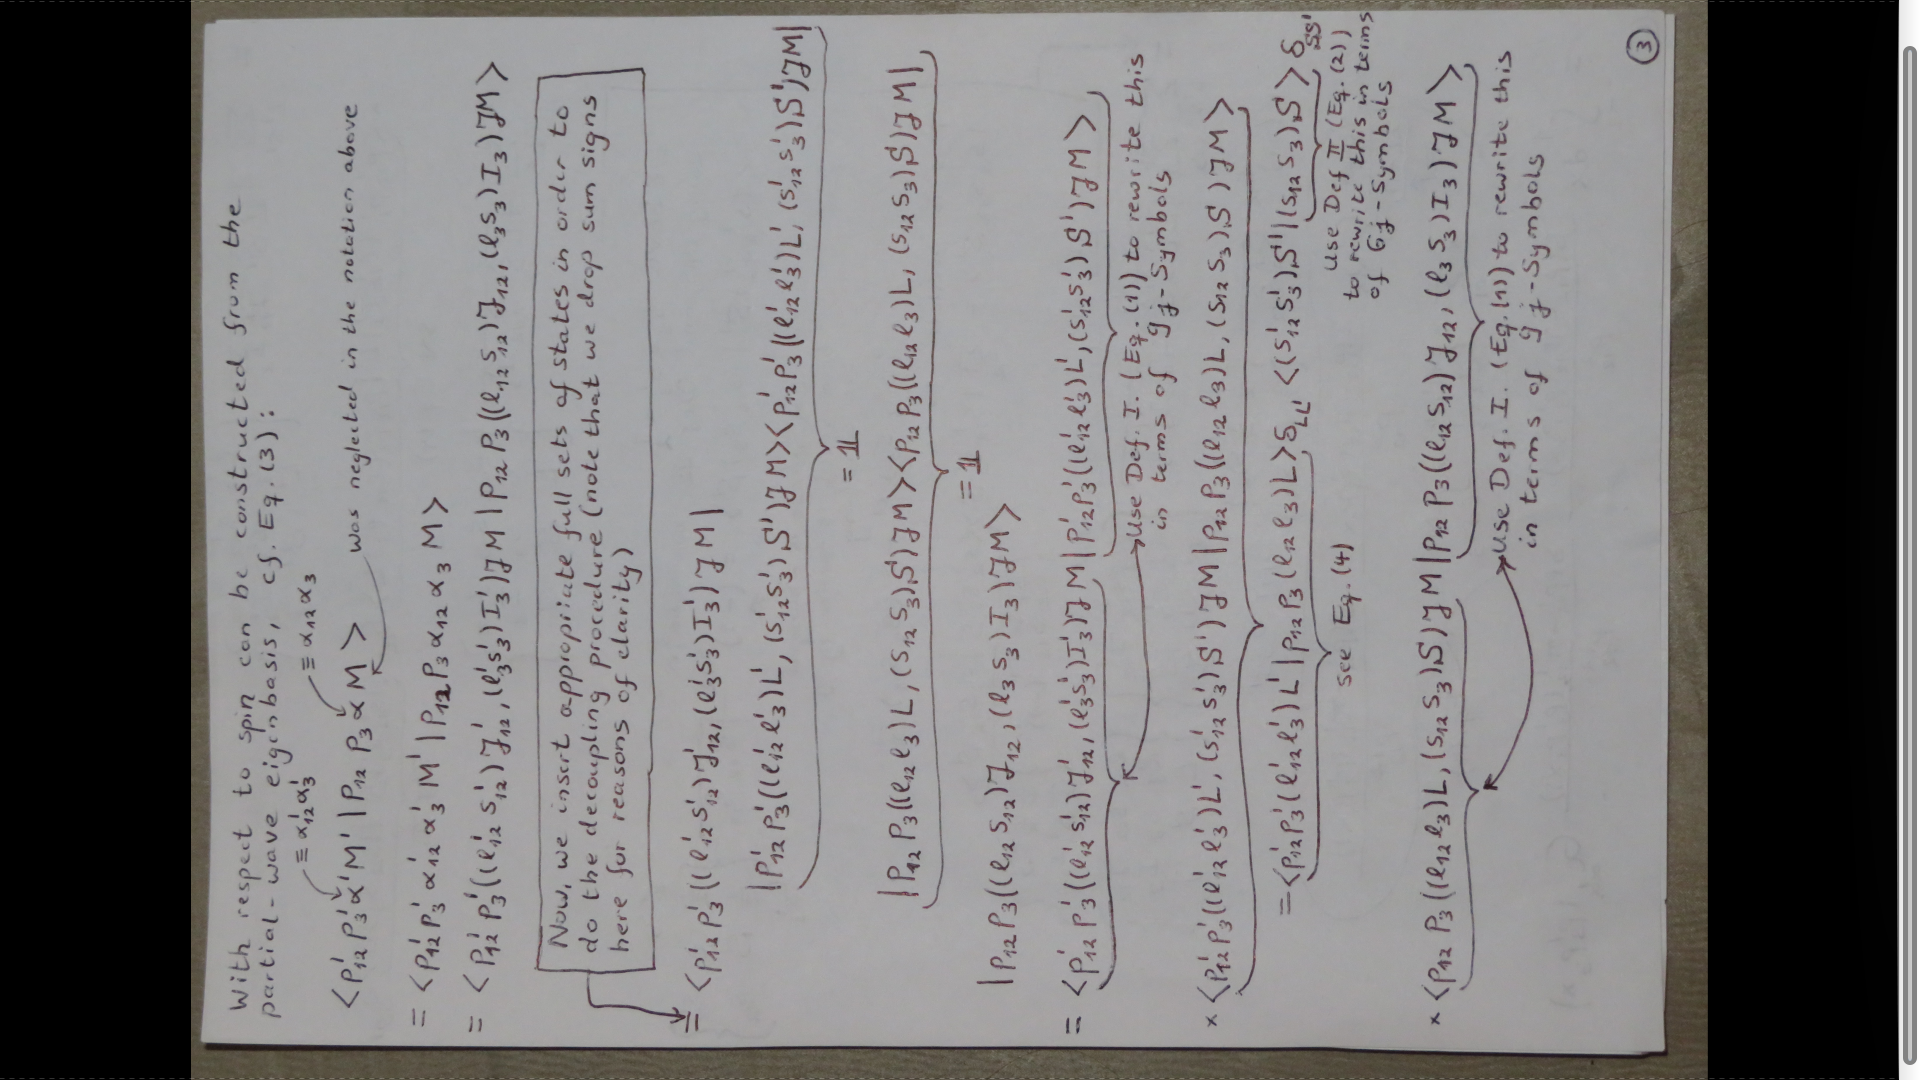 With respect to spin can be constructed from the
partial-wave eigenbasis, cf. Eq. (3):
≡α₁₂'α₃' ≡α₁₂α₃
<P₁₂'P₃'α'M'|P₁₂P₃αM> was neglected in the notation above
= <P₁₂'P₃'α₁₂'α₃'M'|P₁₂P₃α₁₂α₃M>
= <P₁₂'P₃'((l₁₂'s₁₂')J₁₂',(l₃'s₃')I₃')JM|P₁₂P₃((l₁₂s₁₂)J₁₂,(l₃s₃)I₃)JM>
Now, we insert appropriate full sets of states in order to
do the decoupling procedure (note that we drop sum signs
here for reasons of clarity)
= <P₁₂'P₃'((l₁₂'s₁₂')J₁₂',(l₃'s₃')I₃')JM|
|P₁₂'P₃'((l₁₂'l₃')L',(s₁₂'s₃')S')JM><P₁₂'P₃'((l₁₂'l₃')L',(s₁₂'s₃')S')JM|
=𝟙
|P₁₂P₃((l₁₂l₃)L,(s₁₂s₃)S)JM><P₁₂P₃((l₁₂l₃)L,(s₁₂s₃)S)JM|
=𝟙
|P₁₂P₃((l₁₂s₁₂)J₁₂,(l₃s₃)I₃)JM>
= <P₁₂'P₃'((l₁₂'s₁₂')J₁₂',(l₃'s₃')I₃')JM|P₁₂'P₃'((l₁₂'l₃')L',(s₁₂'s₃')S')JM>
Use Def. I. (Eq. (1)) to rewrite this
in terms of 9j-Symbols
× <P₁₂'P₃'((l₁₂'l₃')L',(s₁₂'s₃')S')JM|P₁₂P₃((l₁₂l₃)L,(s₁₂s₃)S)JM>
= <P₁₂'P₃'(l₁₂'l₃')L'|P₁₂P₃(l₁₂l₃)L>δLL' <(s₁₂'s₃')S'|(s₁₂s₃)S>δSS'
see Eq. (4)
Use Def II (Eq. (2))
to rewrite this in terms
of 6j-Symbols
× <P₁₂P₃((l₁₂l₃)L,(s₁₂s₃)S)JM|P₁₂P₃((l₁₂s₁₂)J₁₂,(l₃s₃)I₃)JM>
Use Def. I. (Eq. (1)) to rewrite this
in terms of 9j-Symbols
3